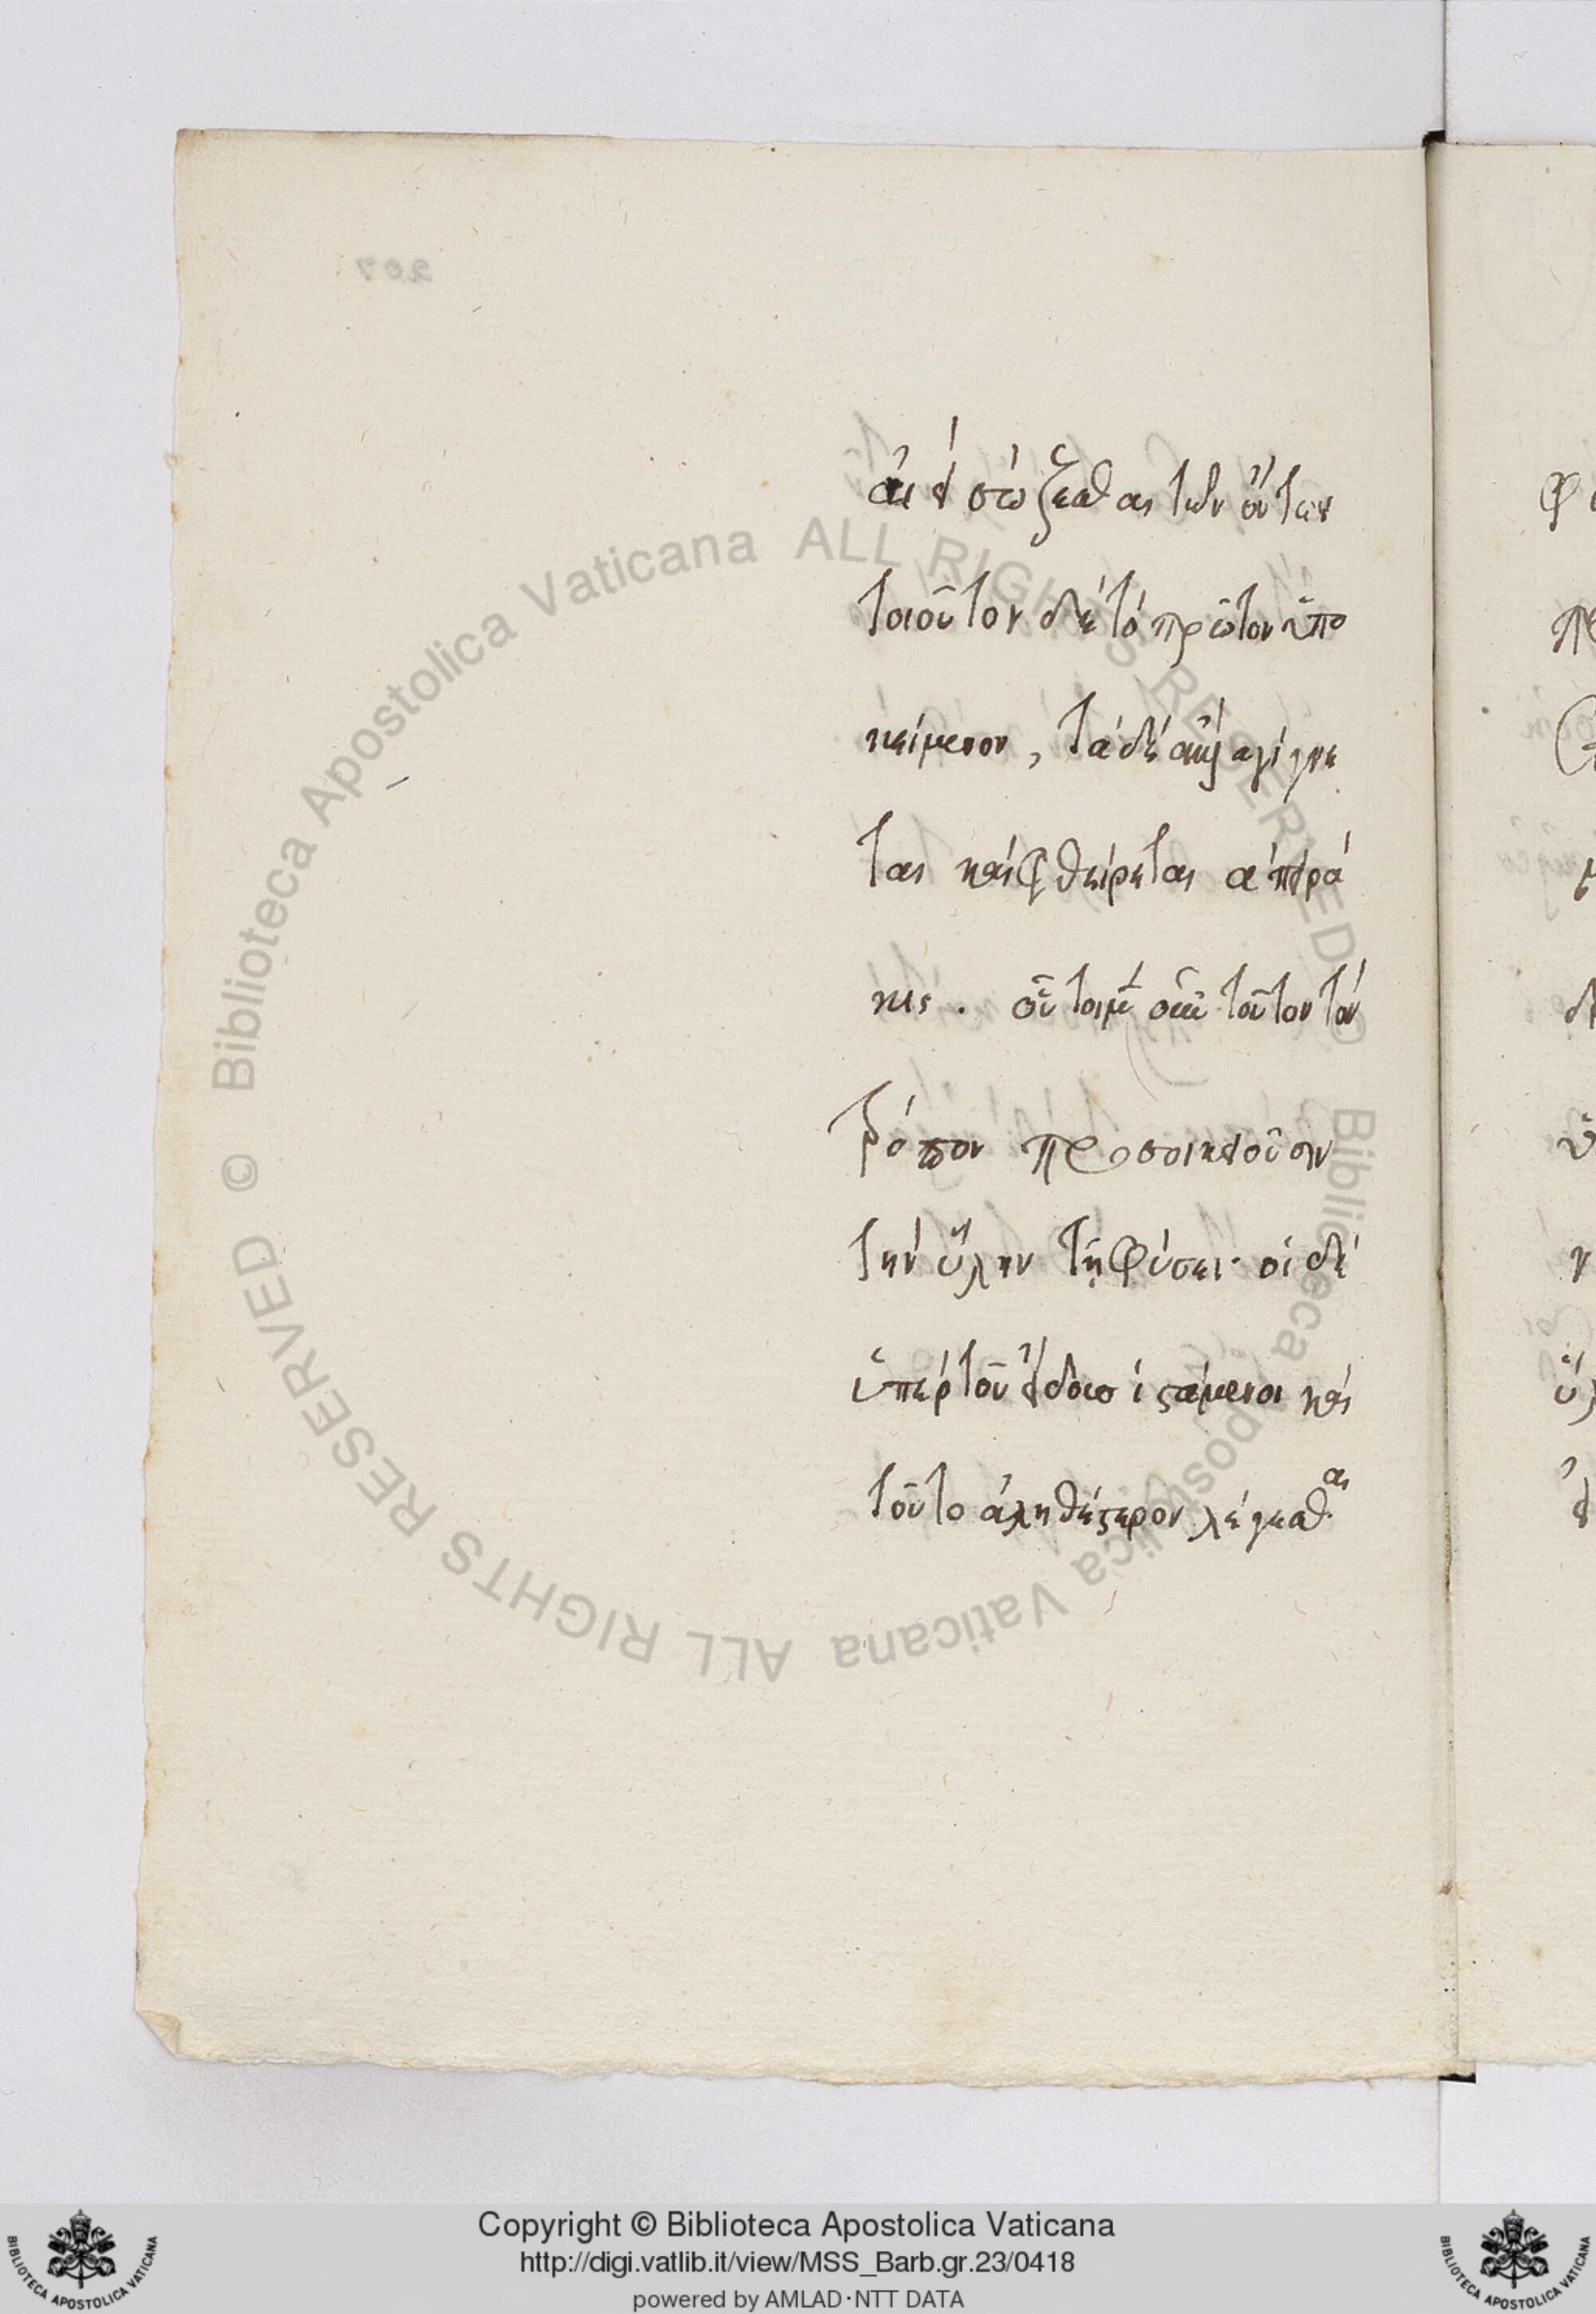 207
ἀεὶ σώζεσθαι τῶν ὄντων
τοιοῦτον δὲ τὸ πρῶτον ὑπο
κείμενον, τὰ δὲ ἄλλα γίγνε
ται καὶ φθείρεται ἀπειρά
κις. οὗτοι μὲν οὖν τοῦτον τὸν
τρόπον προσοικειοῦσιν
τὴν ὕλην τῇ φύσει· οἱ δὲ
ὑπὲρ τοῦ εἴδους ἱστάμενοι καὶ
τοῦτο ἀληθέστερον λέγεσθαι
Biblioteca Apostolica Vaticana ALL RIGHTS RESERVED ©
Biblioteca Apostolica Vaticana ALL RIGHTS RESERVED ©
BIBLIOTECA APOSTOLICA VATICANA
Copyright © Biblioteca Apostolica Vaticana
http://digi.vatlib.it/view/MSS_Barb.gr.23/0418
powered by AMLAD·NTT DATA
BIBLIOTECA APOSTOLICA VATICANA